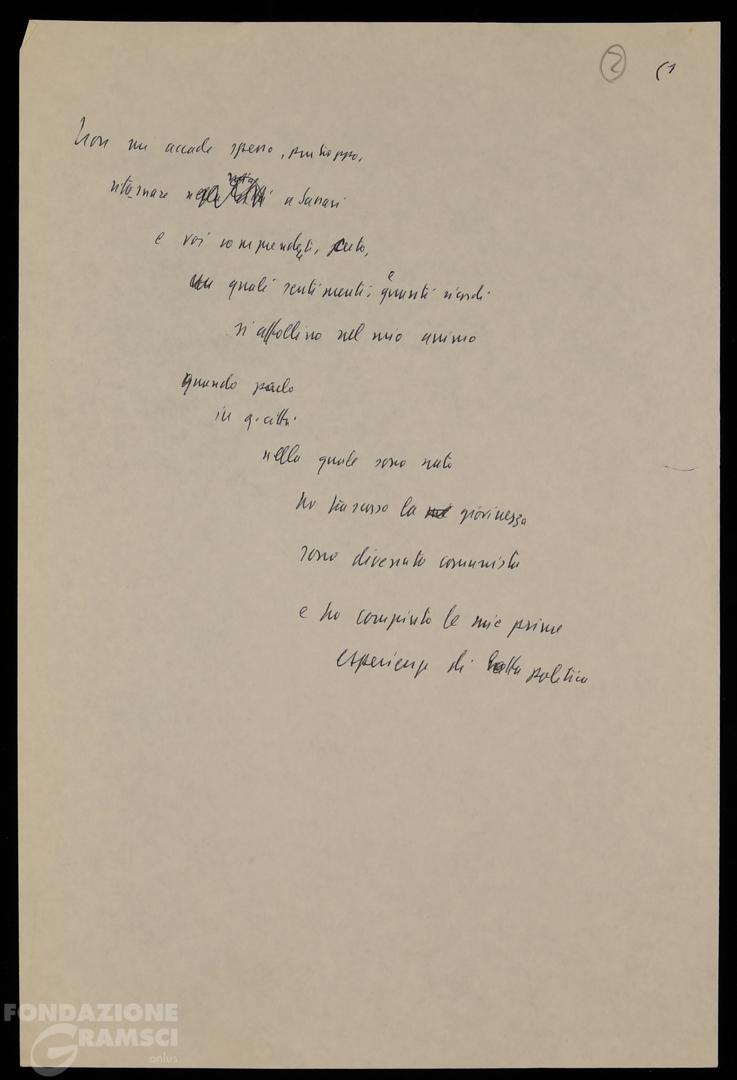 2 (1
Non mi accade spesso, purtroppo,
ritornare a Sassari
e voi comprendete, certo,
quali sentimenti e quanti ricordi
si affollino nel mio animo
quando parlo
in q. città
nella quale sono nato
ho trascorso la giovinezza
sono diventato comunista
e ho compiuto le mie prime
esperienze di lotta politica
FONDAZIONE
GRAMSCI
onlus